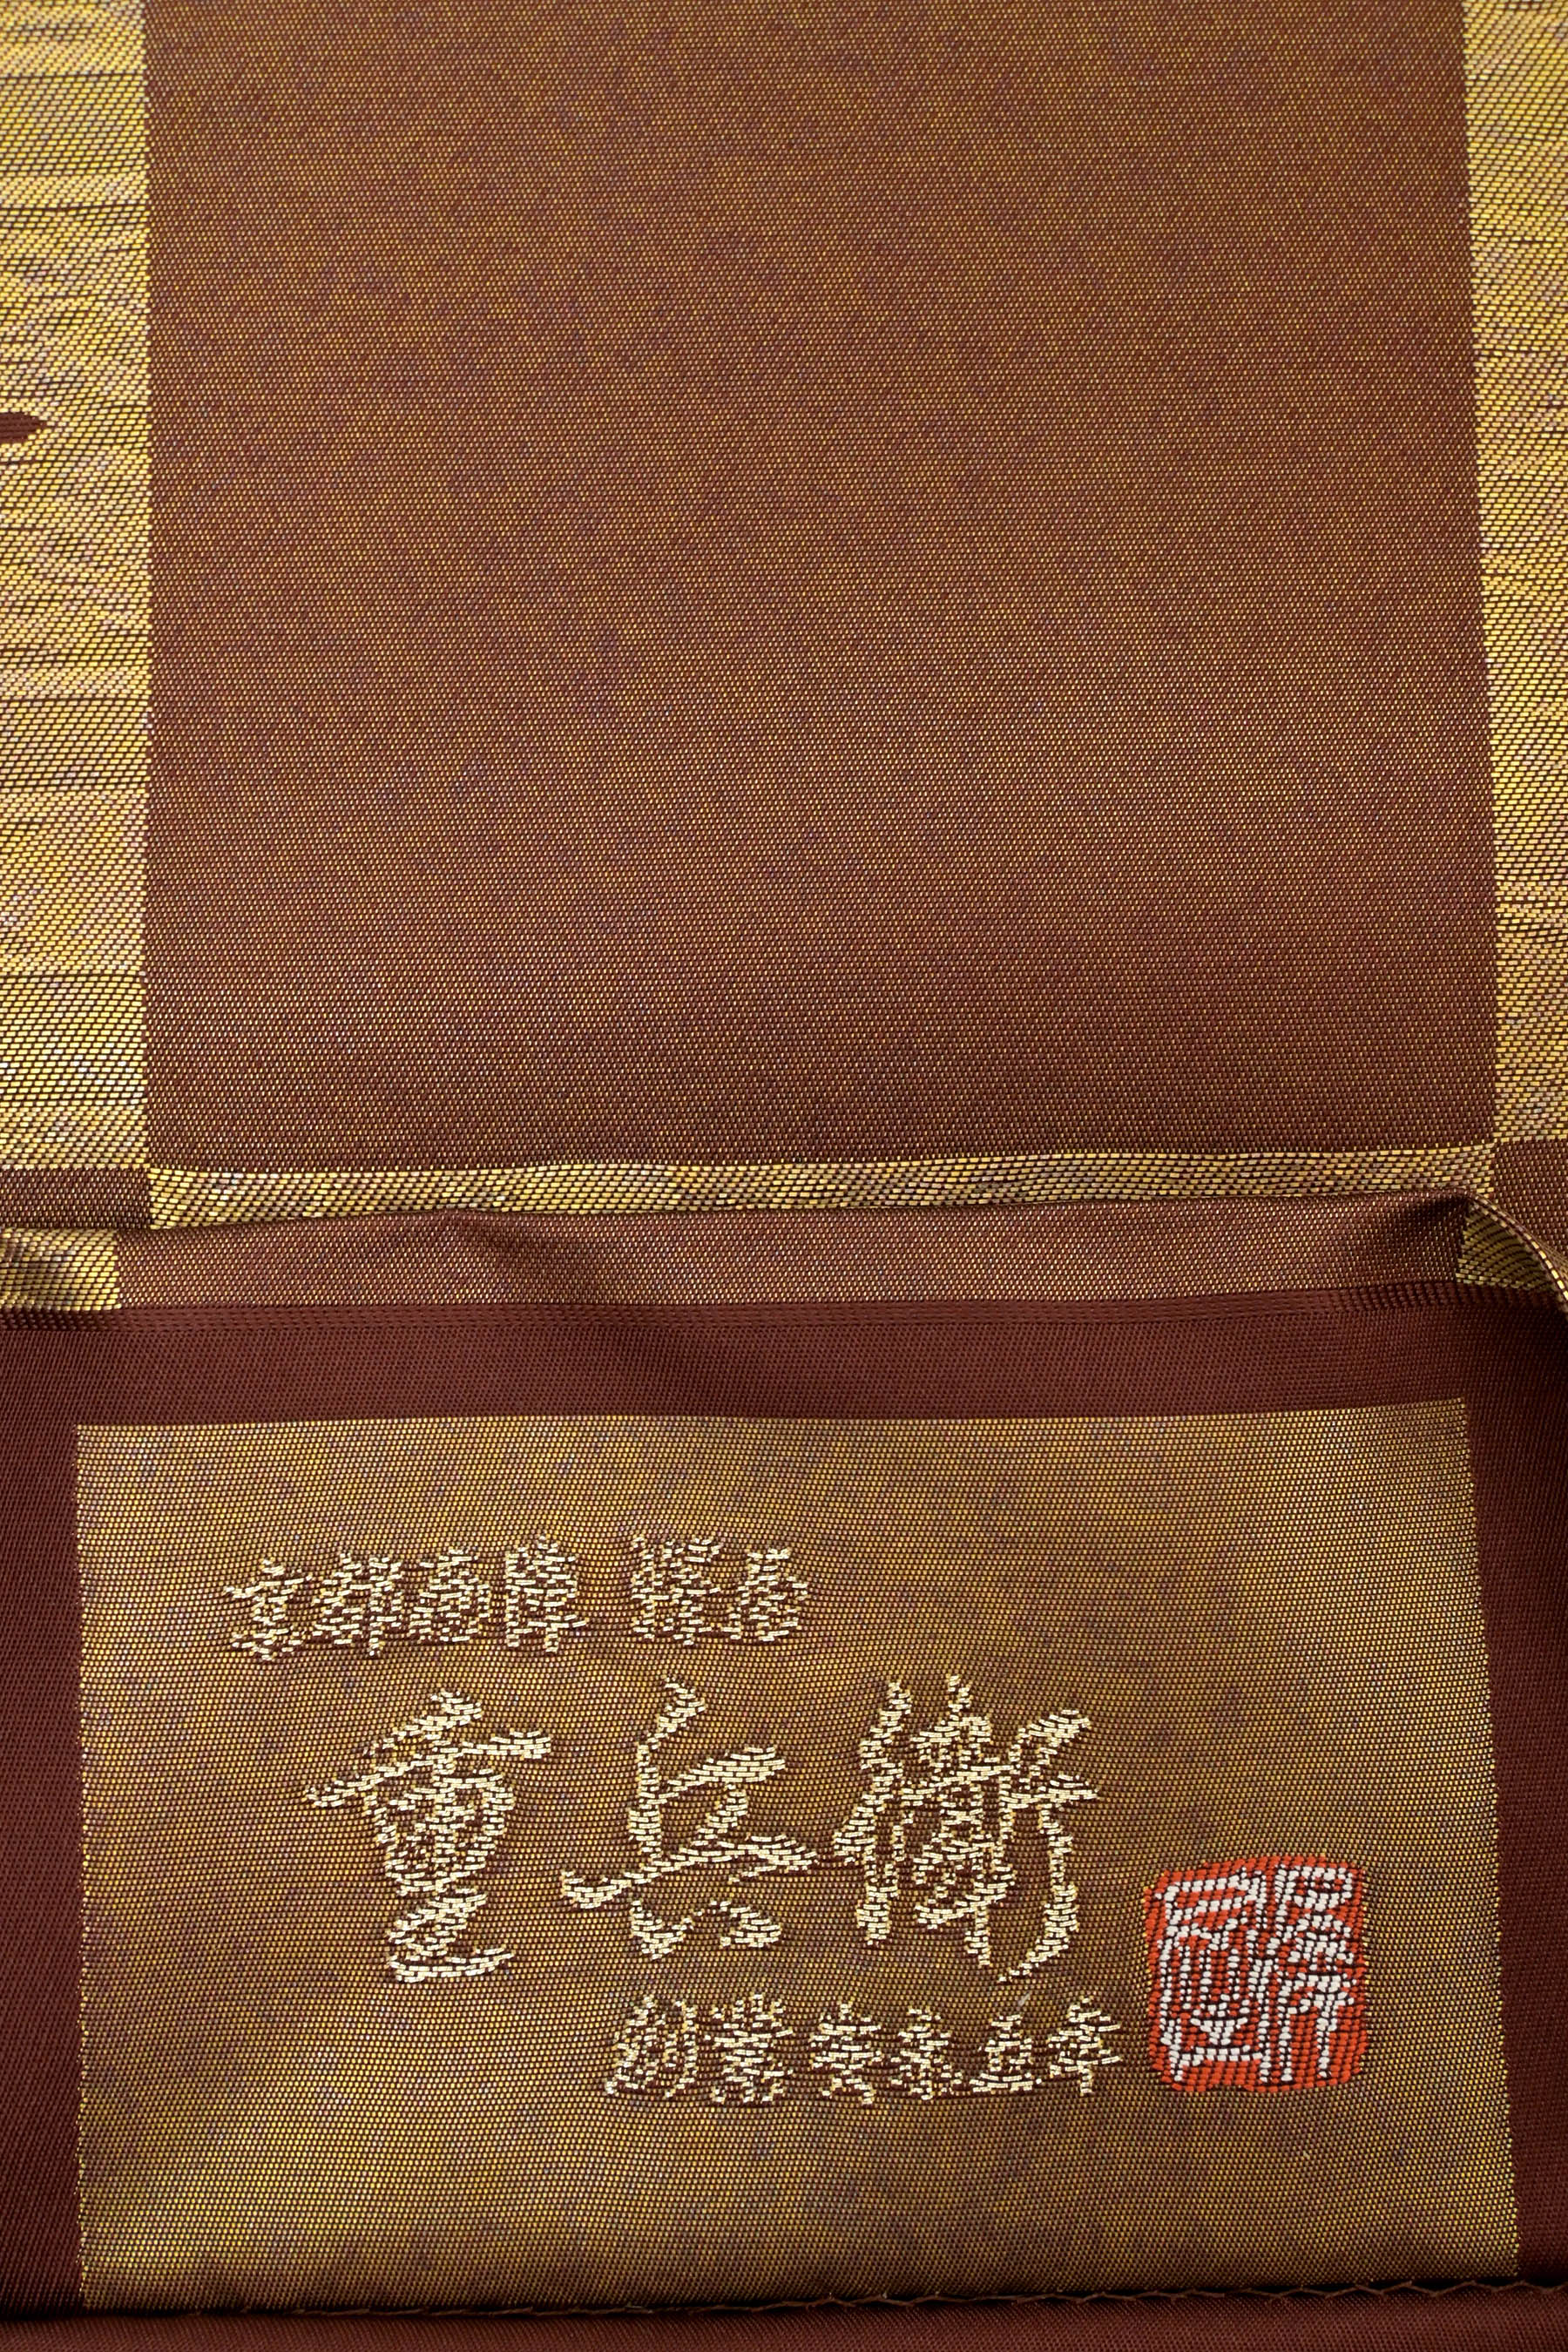 京都西陣 謹製
重兵衛
創業安永五年